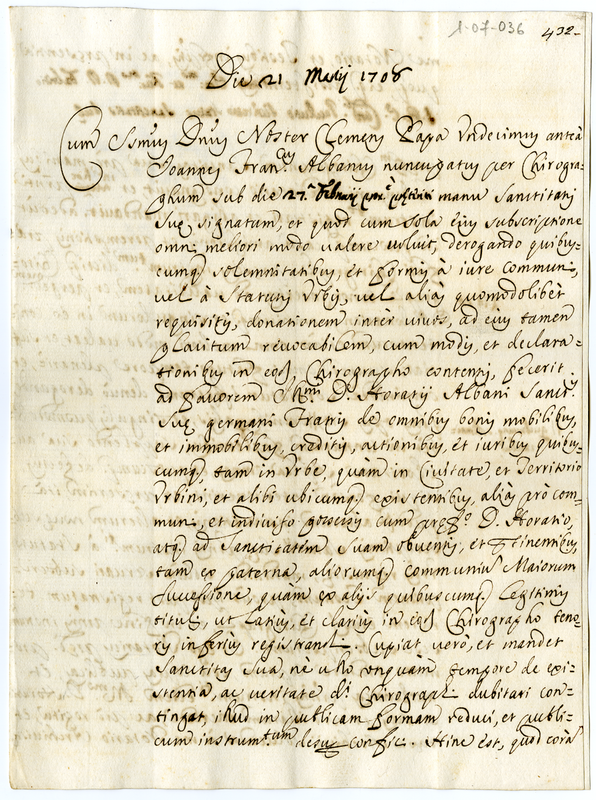 1-07-036
432-
Die 21 Maij 1708
Cum Ssmus Dnus Noster Clemens Papa Undecimus anteà
Joannes Fran.cus Albanus nuncupatus per Chirogra=
phum sub die 27.a Februarij manu Sanctitatis
Suę signatum, et quod cum sola eius subscriptione
omni meliori modo valere voluit, derogando quibus=
cumq; solemnitatibus, et formis à iure communi,
vel à Statutis Urbis, vel alias quomodolibet
requisitis, donationem inter vivos, ad eius tamen
placitum revocabilem, cum modis, et declara=
tionibus in eod. Chirographo contentis, fecerit
ad favorem D. Horatij Albani Sanct.s
Suę germani Fratris de omnibus bonis mobilibus,
et immobilibus, creditis, actionibus, et iuribus quibus=
cumq; tam in Urbe, quàm in Civitate, et Territorio
Urbini, et alibi ubicumq; existentibus, alias pro com=
muni, et indiviso possessis cum D. Horatio,
atq; ad Sanctitatem Suam obventis, et ptinentibus,
tam ex paterna, aliorumq; communium Maiorum
successione, quam ex alijs quibuscumq; legitimis
titulis, ut latius, et clarius in eod. Chirographo teno=
ris inferius registrand. Cupiat vero, et mandet
Sanctitas Sua, nè ullo unquàm tempore de exi=
stentia, ac veritate di Chirograph. dubitari con=
tingat, illud in publicam formam reduci, et publi=
cum instrum.tum confic. Hinc est, quod corà